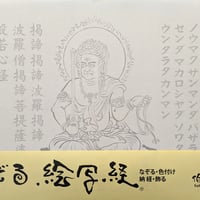 ノウマクサンマンダバサラ
センダマカロシャダソワ
ウンタラタカンマン
掲諦掲諦波羅掲諦
波羅僧掲諦菩提薩
般若心経
ぞる絵写経®
なぞる・色付け
納経・飾る